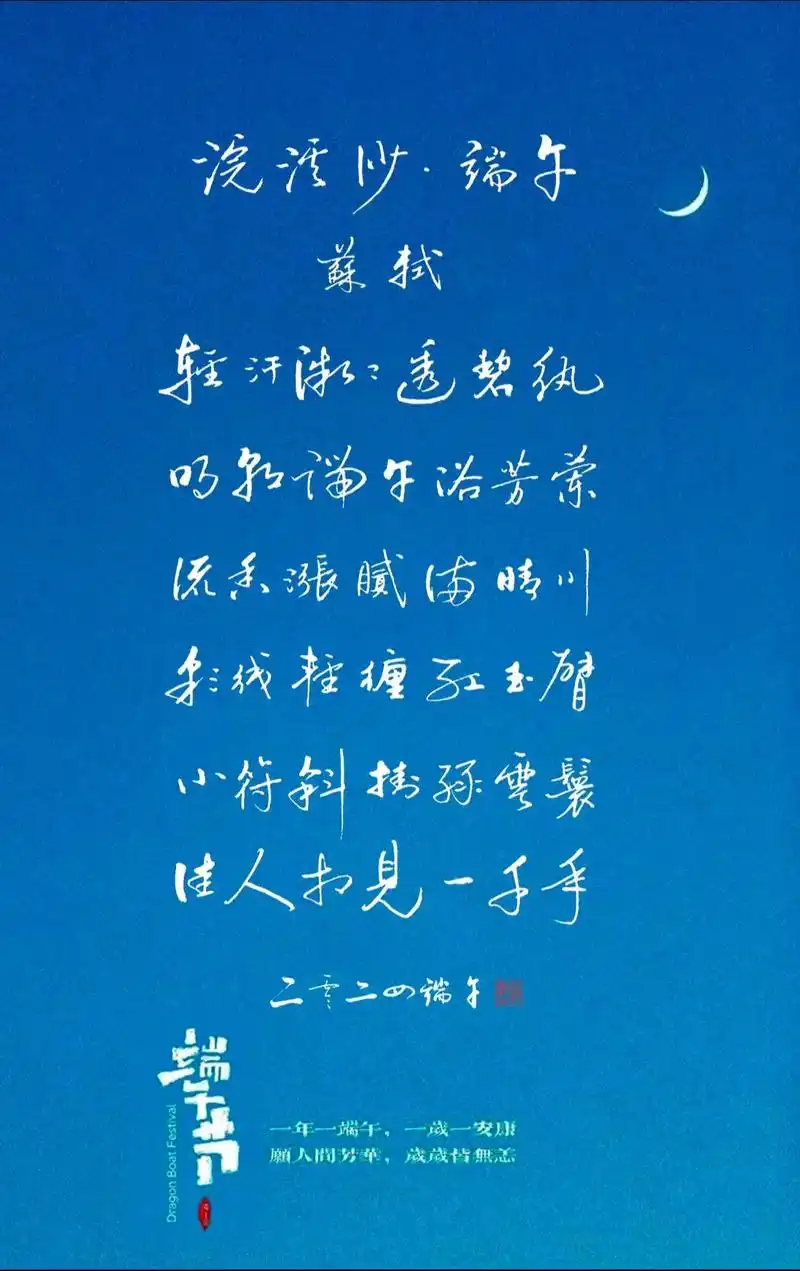 浣溪沙·端午
蘇軾
輕汗微〻透碧紈
明朝端午浴芳蘭
流香漲膩滿晴川
彩线輕纏红玉臂
小符斜掛綠雲鬟
佳人相見一千年
二零二四端午
端午节
Dragon Boat Festival
一年一端午，一歲一安康
願人間芳華，歲歲皆無恙